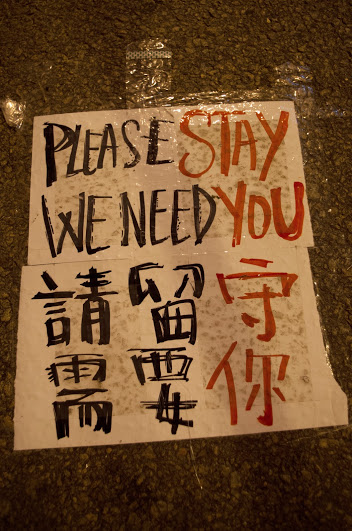 PLEASE STAY
WE NEED YOU
請留守
需要你